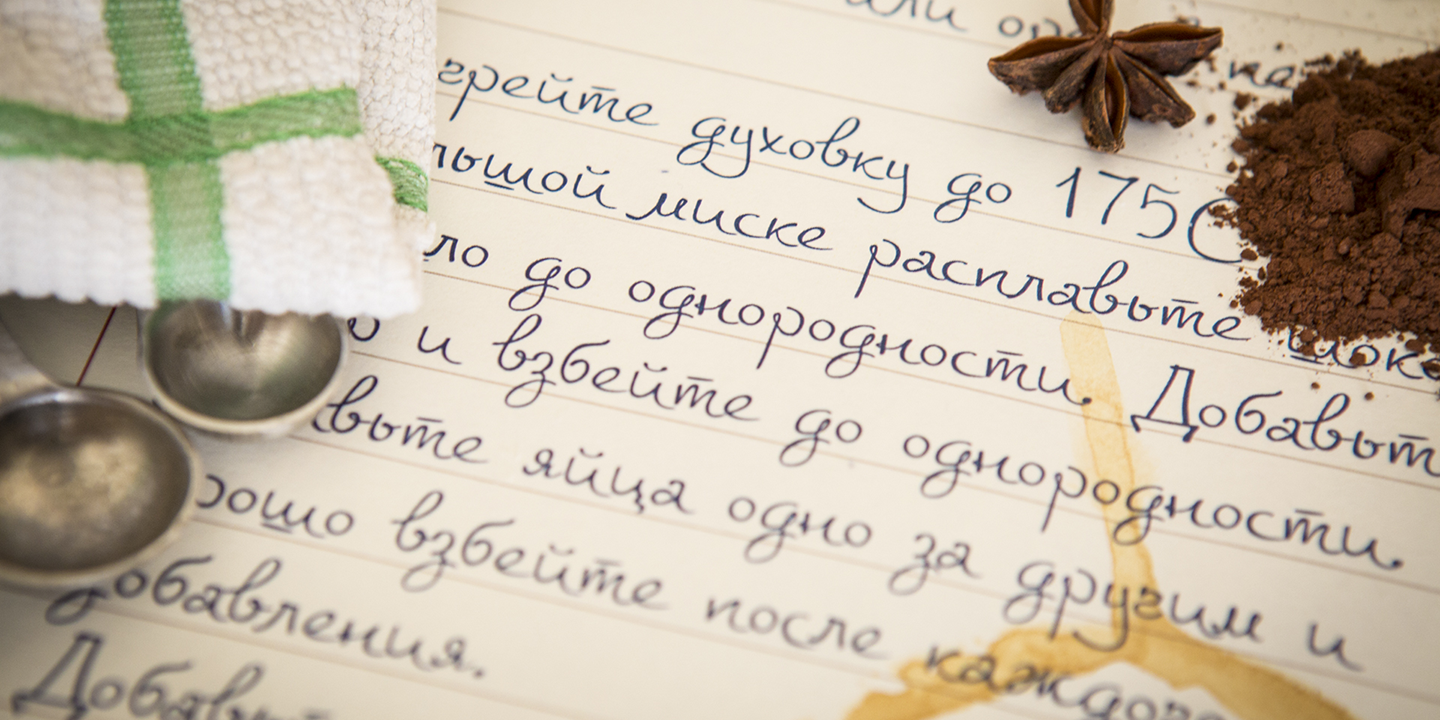 грейте духовку до 175С
льшой миске расплавьте шок
ло до однородности. Добавьт
о и взбейте до однородности.
вьте яйца одно за другим и
рошо взбейте после каждого
добавления.
Добавьт